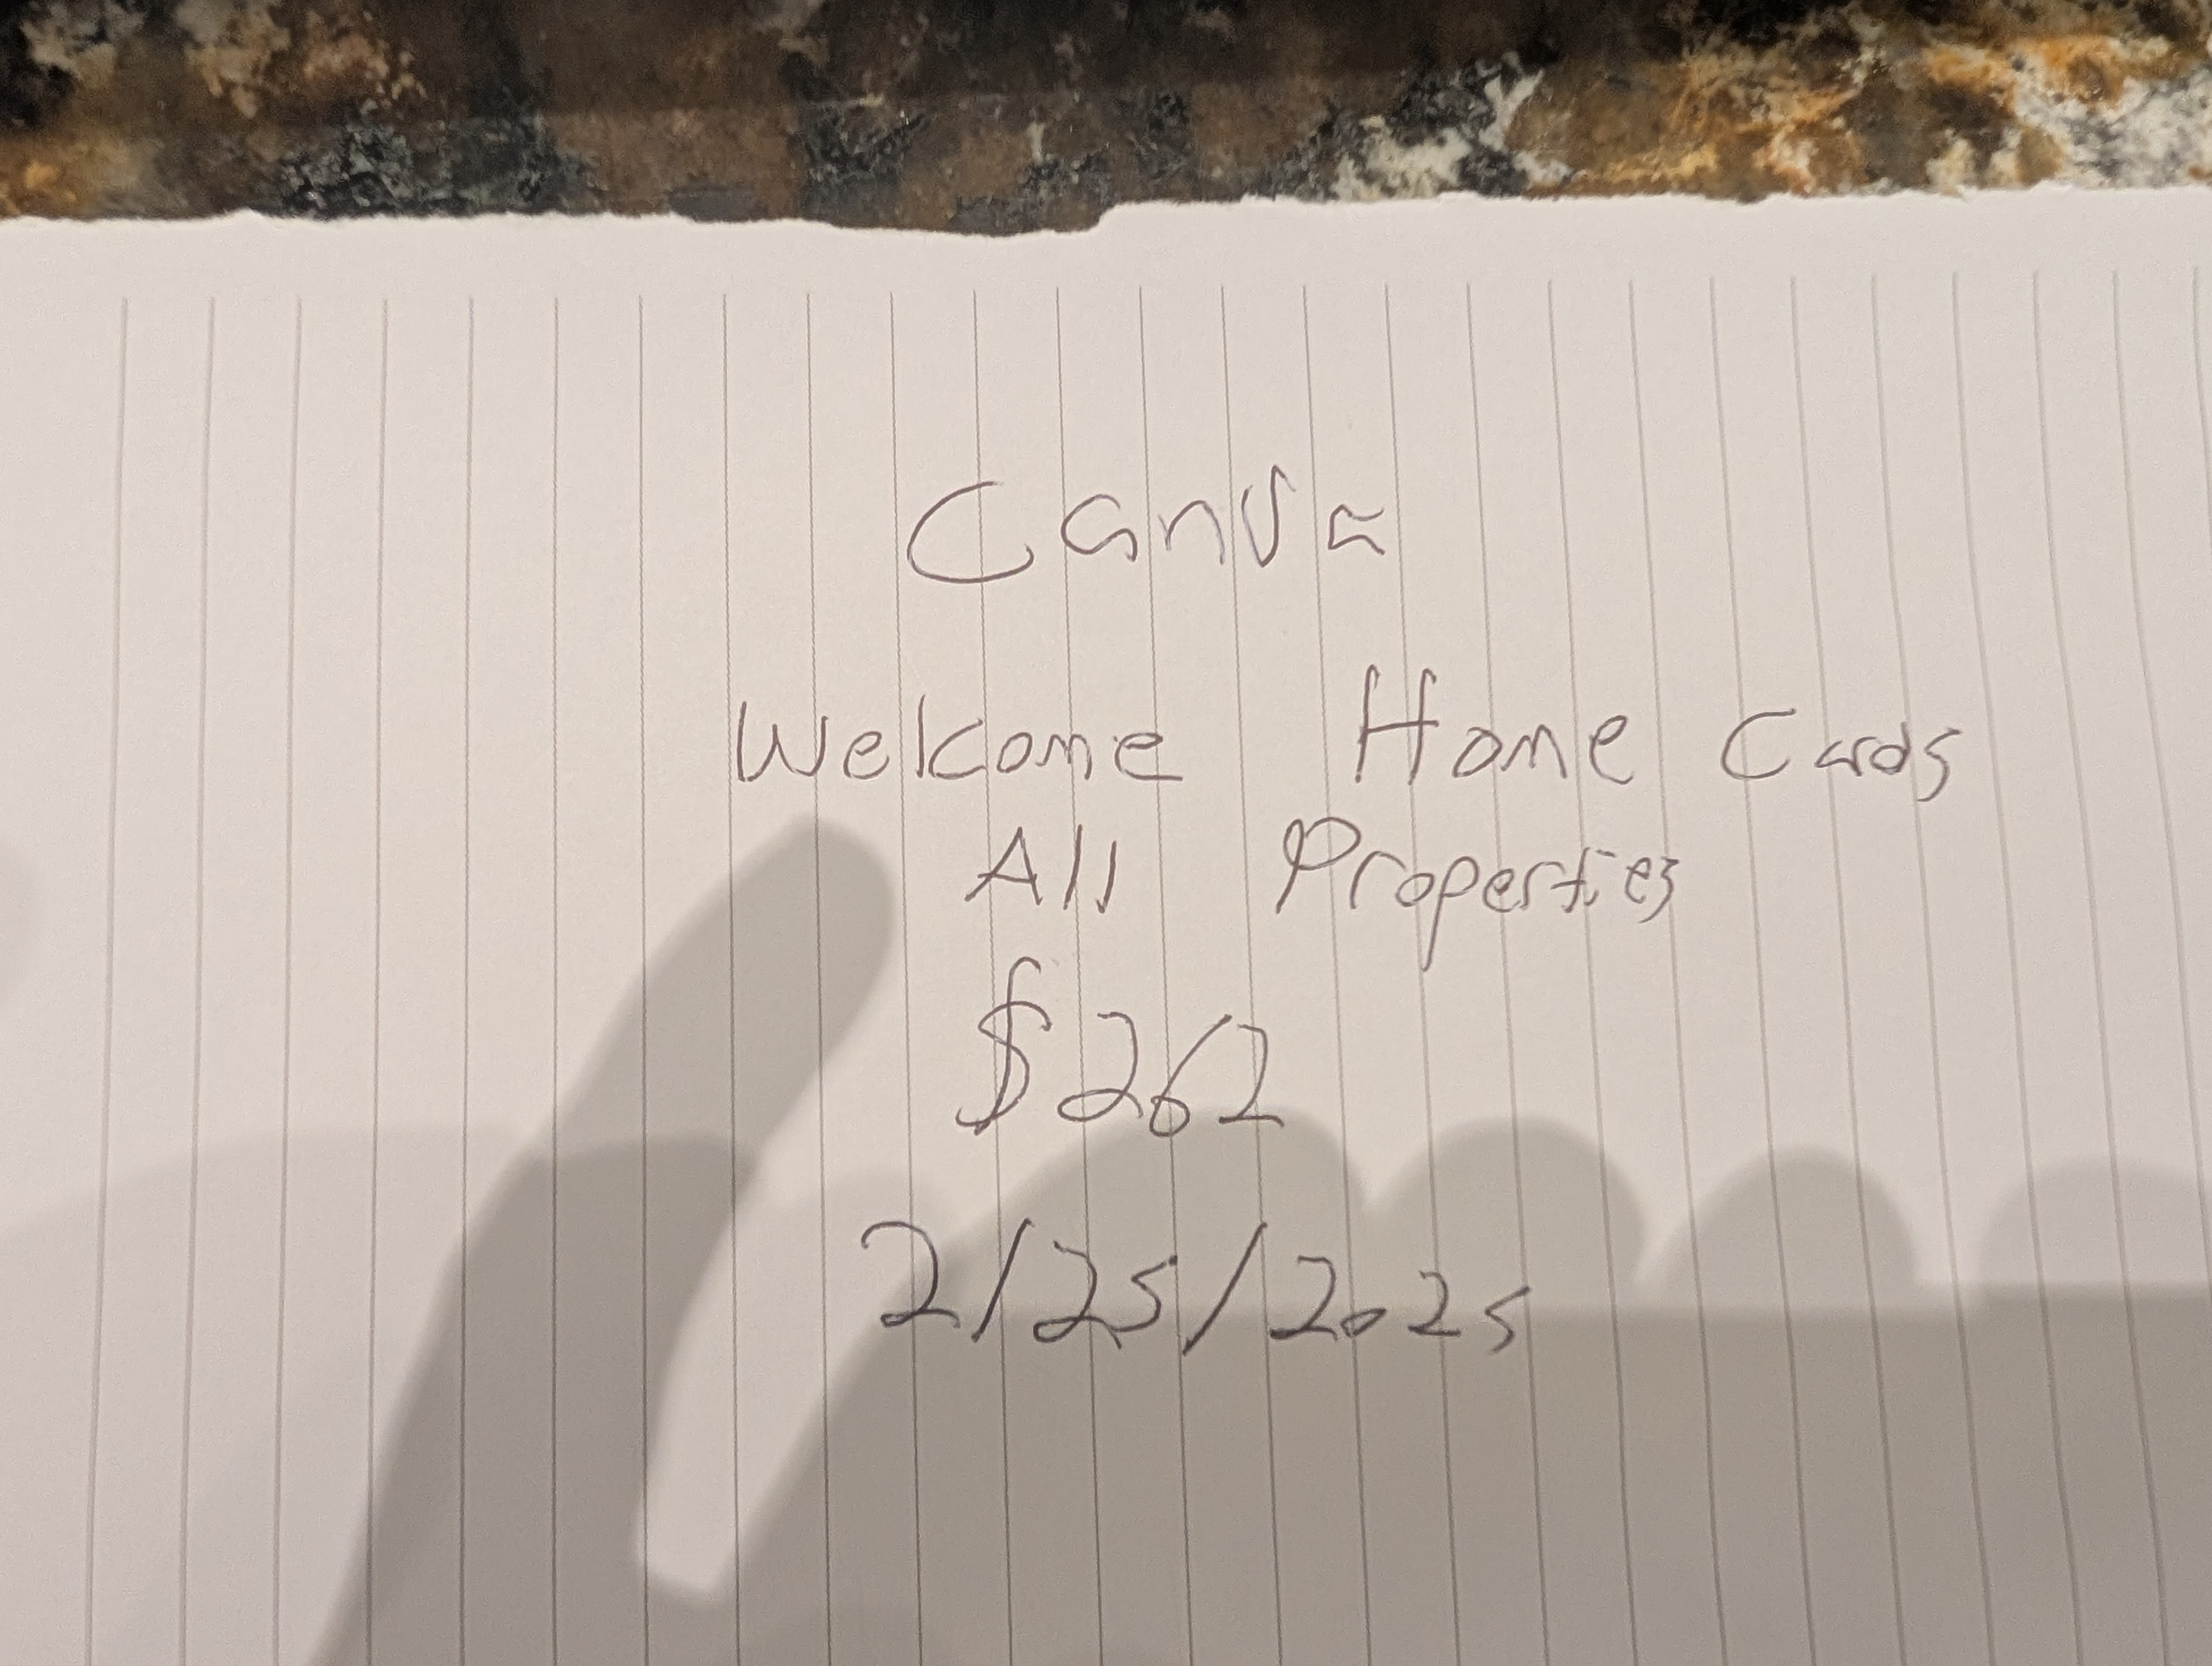 Canva
Welcome Home Cards
All Properties
$262
2/25/2025